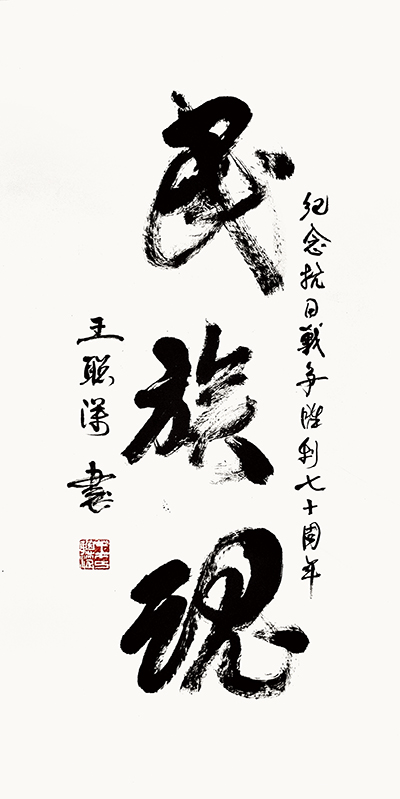 纪念抗日戰争胜利七十周年
民族魂
王聪 書